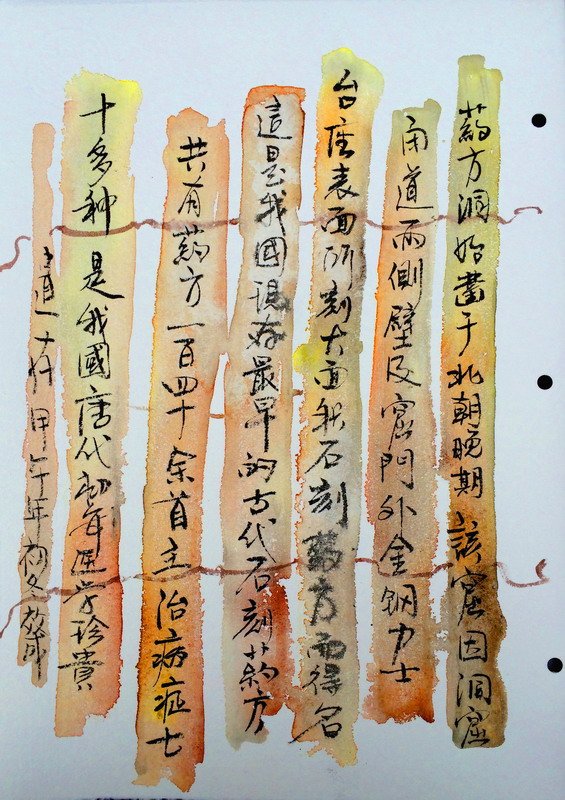 药方洞始凿于北朝晚期 該窟因洞窟
甬道两側壁及窟門外金钢力士
台座表面所刻大面积石刻药方而得名
這是我國現存最早的古代石刻药方
共有药方一百四十余首主治病症七
十多种 是我國唐代初年医学珍貴
甲午年初冬